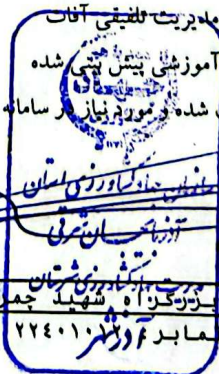 مدیریت تلفیقی آفات
آموزشی پیش بینی شده
شده و مورد نیاز در سامانه
سازمان جهاد کشاورزی استان
آذربایجان شرقی
مدیریت جهاد کشاورزی شهرستان
بزرگراه شهید چمر
مابر
آذرشهر